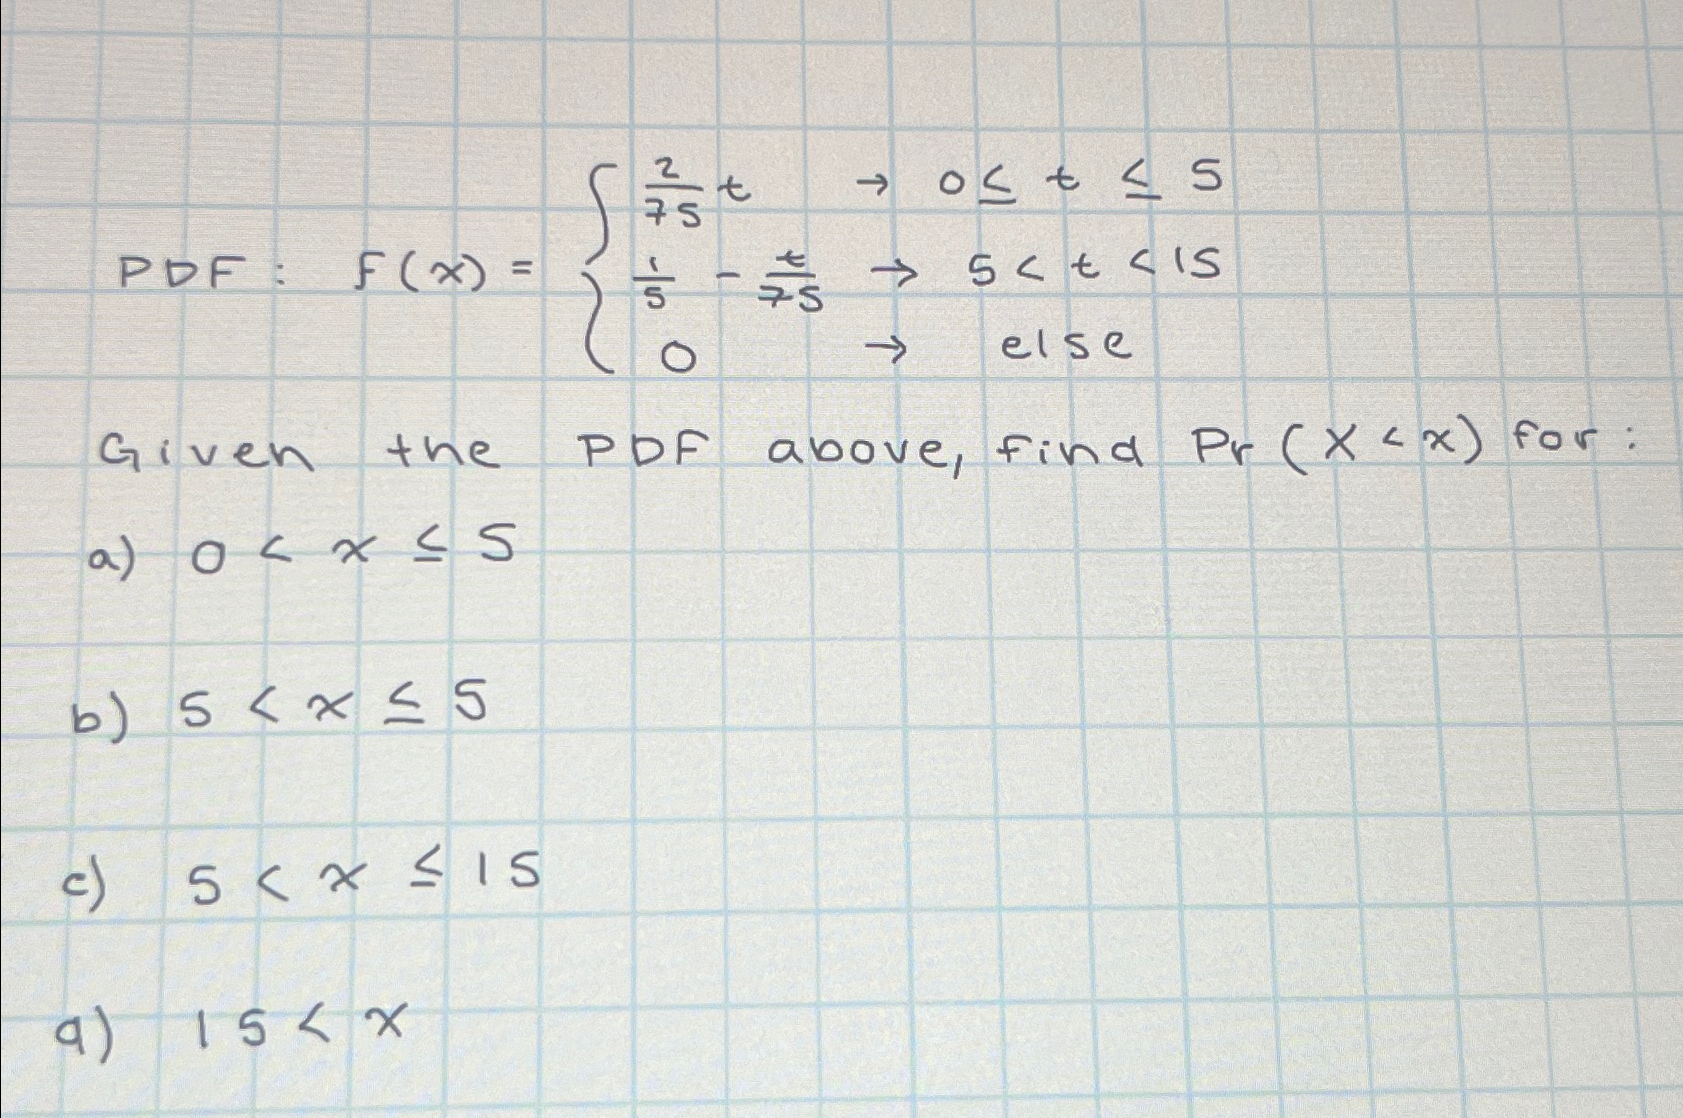 PDF: f(x) = { 2/75 t → 0 ≤ t ≤ 5
1/5 - t/75 → 5 < t < 15
0 → else
Given the PDF above, find Pr (X < x) for:
a) 0 < x ≤ 5
b) 5 < x ≤ 5
c) 5 < x ≤ 15
q) 15 < x